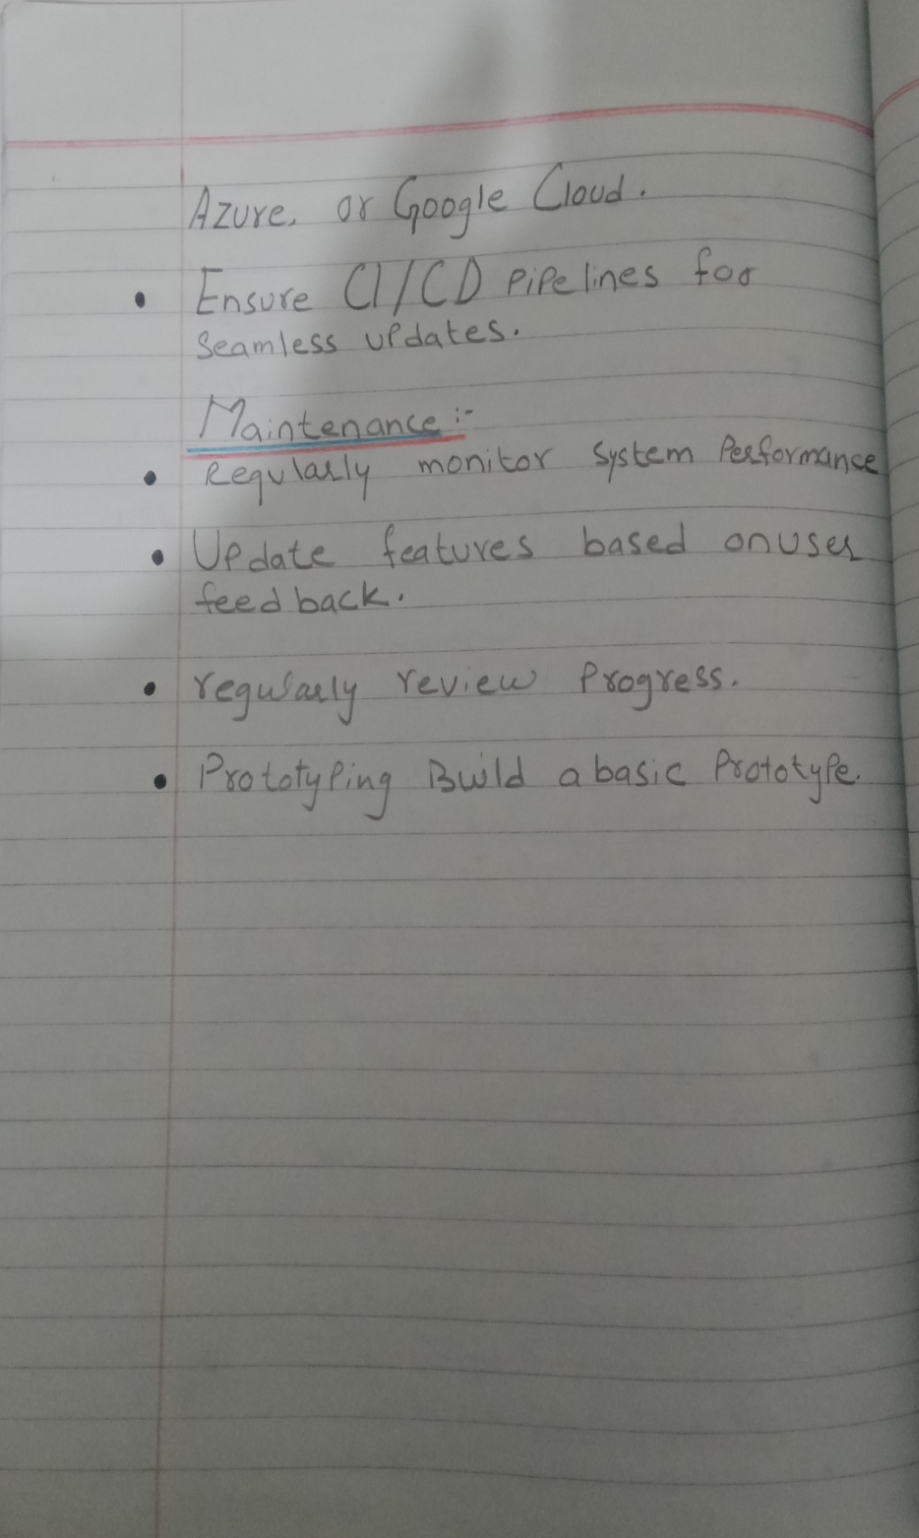 Azure, or Google Cloud.
• Ensure CI/CD Pipelines for
Seamless updates.
Maintenance :-
• Regularly monitor System Performance
• Update features based on user
feedback.
• regularly review Progress.
• Prototyping Build a basic Prototype.